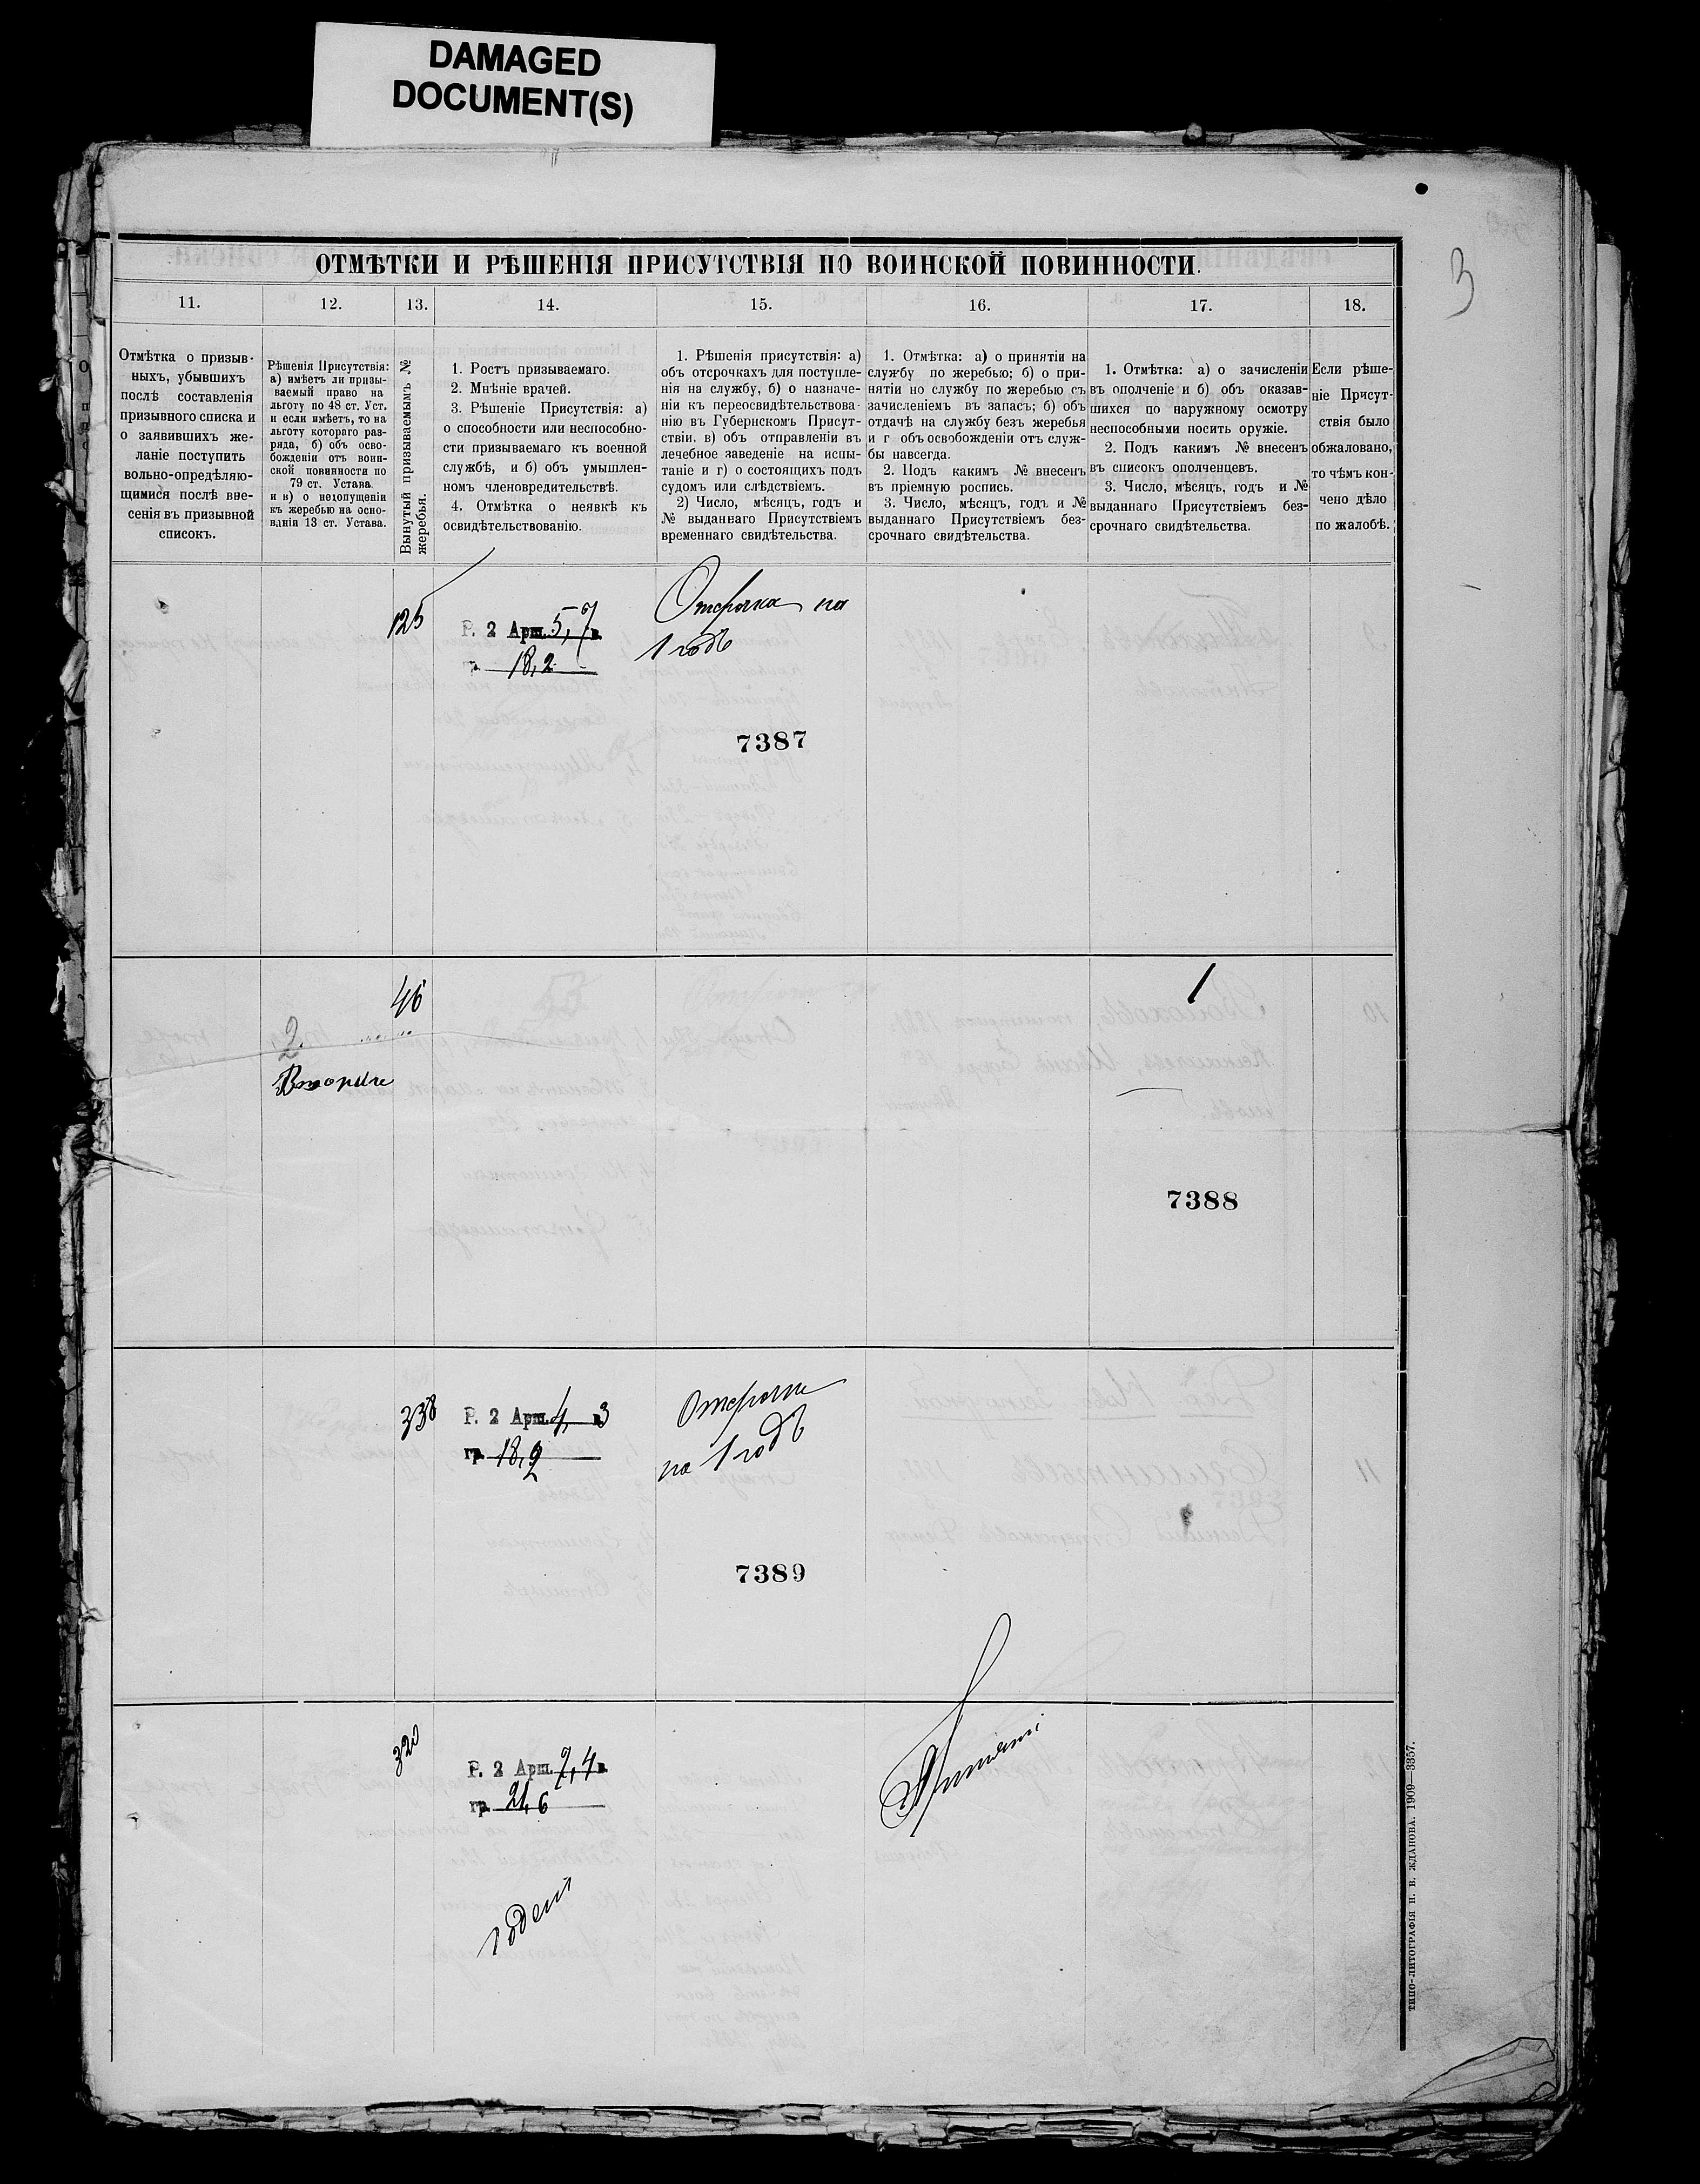 DAMAGED
DOCUMENT(S)
3
ОТМѢТКИ И РѢШЕНІЯ ПРИСУТСТВІЯ ПО ВОИНСКОЙ ПОВИННОСТИ.
11.
12.
13.
14.
15.
16.
17.
18.
Отмѣтка о призыв-
ныхъ, убывшихъ
послѣ составленія
призывного списка и
о заявившихъ же-
ланіе поступить
вольно-опредѣляю-
щимися послѣ вне-
сенія въ призывной
списокъ.
Рѣшенія Присутствія:
а) имѣетъ ли призы-
ваемый право на
льготу по 48 ст. Уст.
и если имѣетъ, то на
льготу котораго раз-
ряда, б) объ осво-
божденіи отъ воин-
ской повинности по
79 ст. Устава.
и в) о недопущеніи
къ жеребью на осно-
ваніи 13 ст. Устава.
Вынутый призываемымъ №
жеребья.
1. Ростъ призываемаго.
2. Мнѣніе врачей.
3. Рѣшеніе Присутствія: а)
о способности или неспособно-
сти призываемаго къ военной
службѣ, и б) объ умышлен-
номъ членовредительствѣ.
4. Отмѣтка о неявкѣ къ
освидѣтельствованію.
1. Рѣшенія присутствія: а)
объ отсрочкахъ для поступле-
нія на службу, б) о назначе-
ніи къ переосвидѣтельствова-
нію въ Губернскомъ Присут-
ствіи, в) объ отправленіи въ
лечебное заведеніе на испы-
таніе и г) о состоящихъ подъ
судомъ или слѣдствіемъ.
2) Число, мѣсяцъ, годъ и
№ выданнаго Присутствіемъ
временнаго свидѣтельства.
1. Отмѣтка: а) о принятіи на
службу по жеребью; б) о при-
нятіи но службу по жеребью съ
зачисленіемъ въ запасъ; б) объ
отдачѣ на службу безъ жеребья
и г объ освобожденіи отъ служ-
бы навсегда.
2. Подъ какимъ № внесенъ
въ пріемную роспись.
3. Число, мѣсяцъ, годъ и №
выданнаго Присутствіемъ без-
срочнаго свидѣтельства.
1. Отмѣтка: а) о зачисленіи
въ ополченіе и б) объ оказав-
шихся по наружному осмотру
неспособными носить оружіе.
2. Подъ какимъ № внесенъ
въ списокъ ополченцевъ.
3. Число, мѣсяцъ, годъ и №
выданнаго Присутствіемъ без-
срочнаго свидѣтельства.
Если рѣше-
ніе Присут-
ствія было
обжаловано,
то чѣмъ кон-
чено дѣло
по жалобѣ.
125
Р. 2 Арш. 5,7 в.
18,2
Отсрочка на
1 годъ
7387
46
2.
Вторые
1
7388
338
Р. 2 Арш. 4, 3
гр. 18,2
Отсрочка
на 1 годъ
7389
320
Р. 2 Арш. 7,4 в.
гр. 21,6
годенъ
Принять
ТИПО-ЛИТОГРАФІЯ Н. В. ЖДАНОВА. 1909—3357.